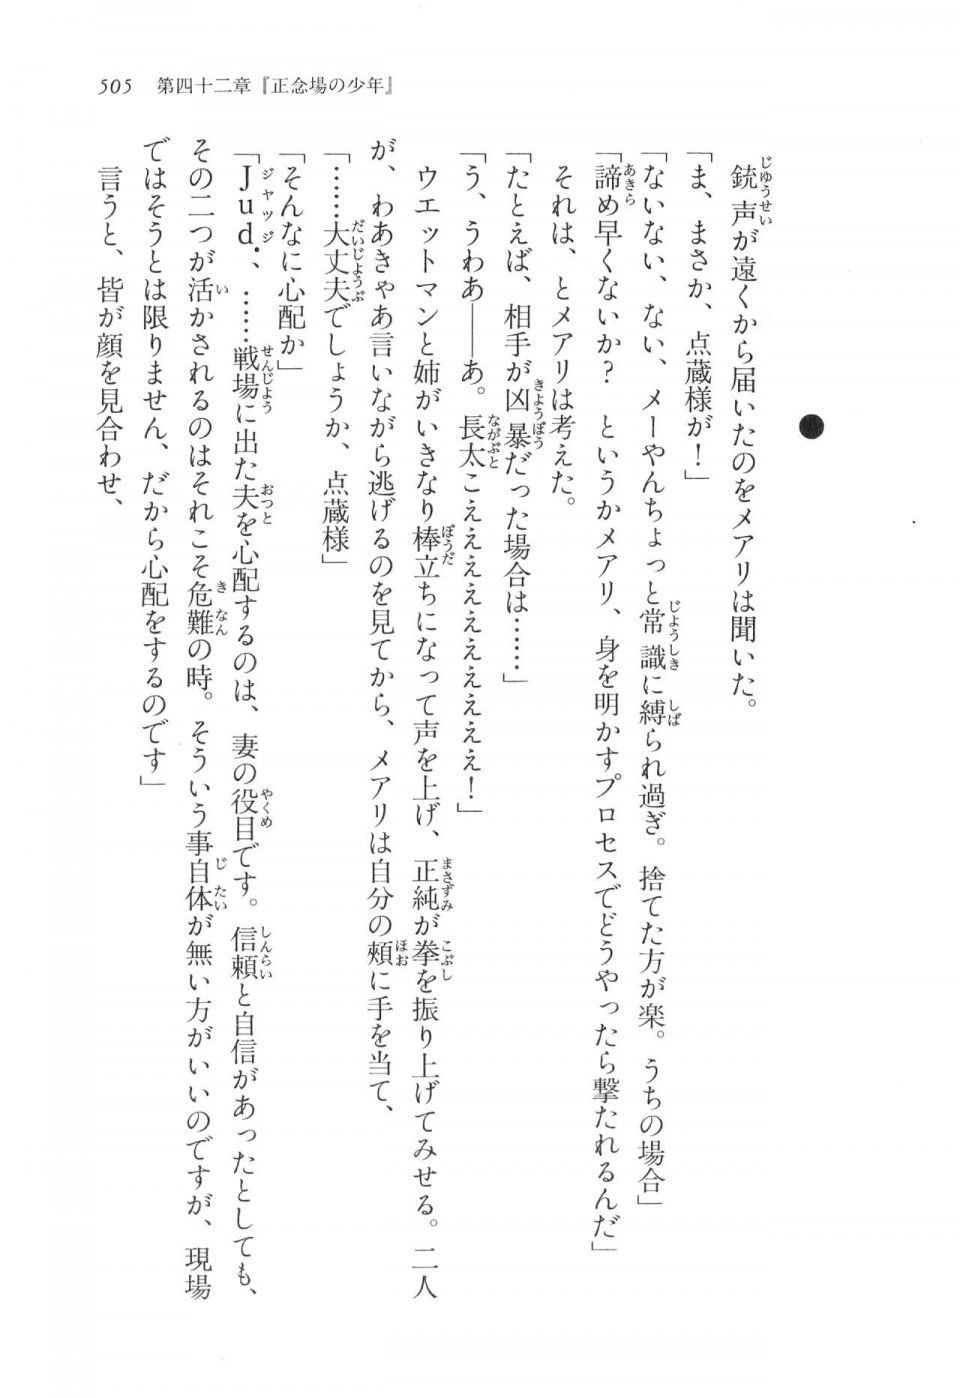 505 第四十二章『正念場の少年』
●
銃声が遠くから届いたのをメアリは聞いた。
「ま、まさか、点蔵様が！」
「ないない、ない、メーやんちょっと常識に縛られ過ぎ。捨てた方が楽。うちの場合」
「諦め早くないか？　というかメアリ、身を明かすプロセスでどうやったら撃たれるんだ」
それは、とメアリは考えた。
「たとえば、相手が凶暴だった場合は……」
「う、うわあ――あ。長太こえええええええええ！」
ウエットマンと姉がいきなり棒立ちになって声を上げ、正純が拳を振り上げてみせる。二人
が、わあきゃあ言いながら逃げるのを見てから、メアリは自分の頰に手を当て、
「……大丈夫でしょうか、点蔵様」
「そんなに心配か」
「Ｊｕｄ．、……戦場に出た夫を心配するのは、妻の役目です。信頼と自信があったとしても、
その二つが活かされるのはそれこそ危難の時。そういう事自体が無い方がいいのですが、現場
ではそうとは限りません、だから心配をするのです」
言うと、皆が顔を見合わせ、